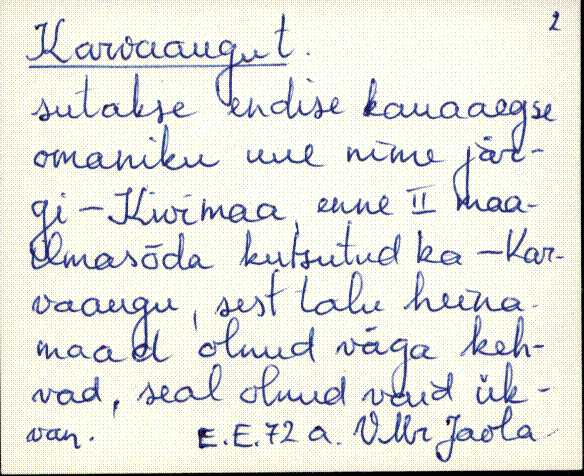 2
Karvaaugu t.
sutakse endise kauaaegse
omaniku uue nime jär-
gi - Kivimaa, enne II maa-
ilmasõda kutsutud ka - Kar-
vaaugu, sest talu heina-
maad olnud väga keh-
vad, seal olnud vaid ük-
van. E.E. 72 a. VMr Jaola